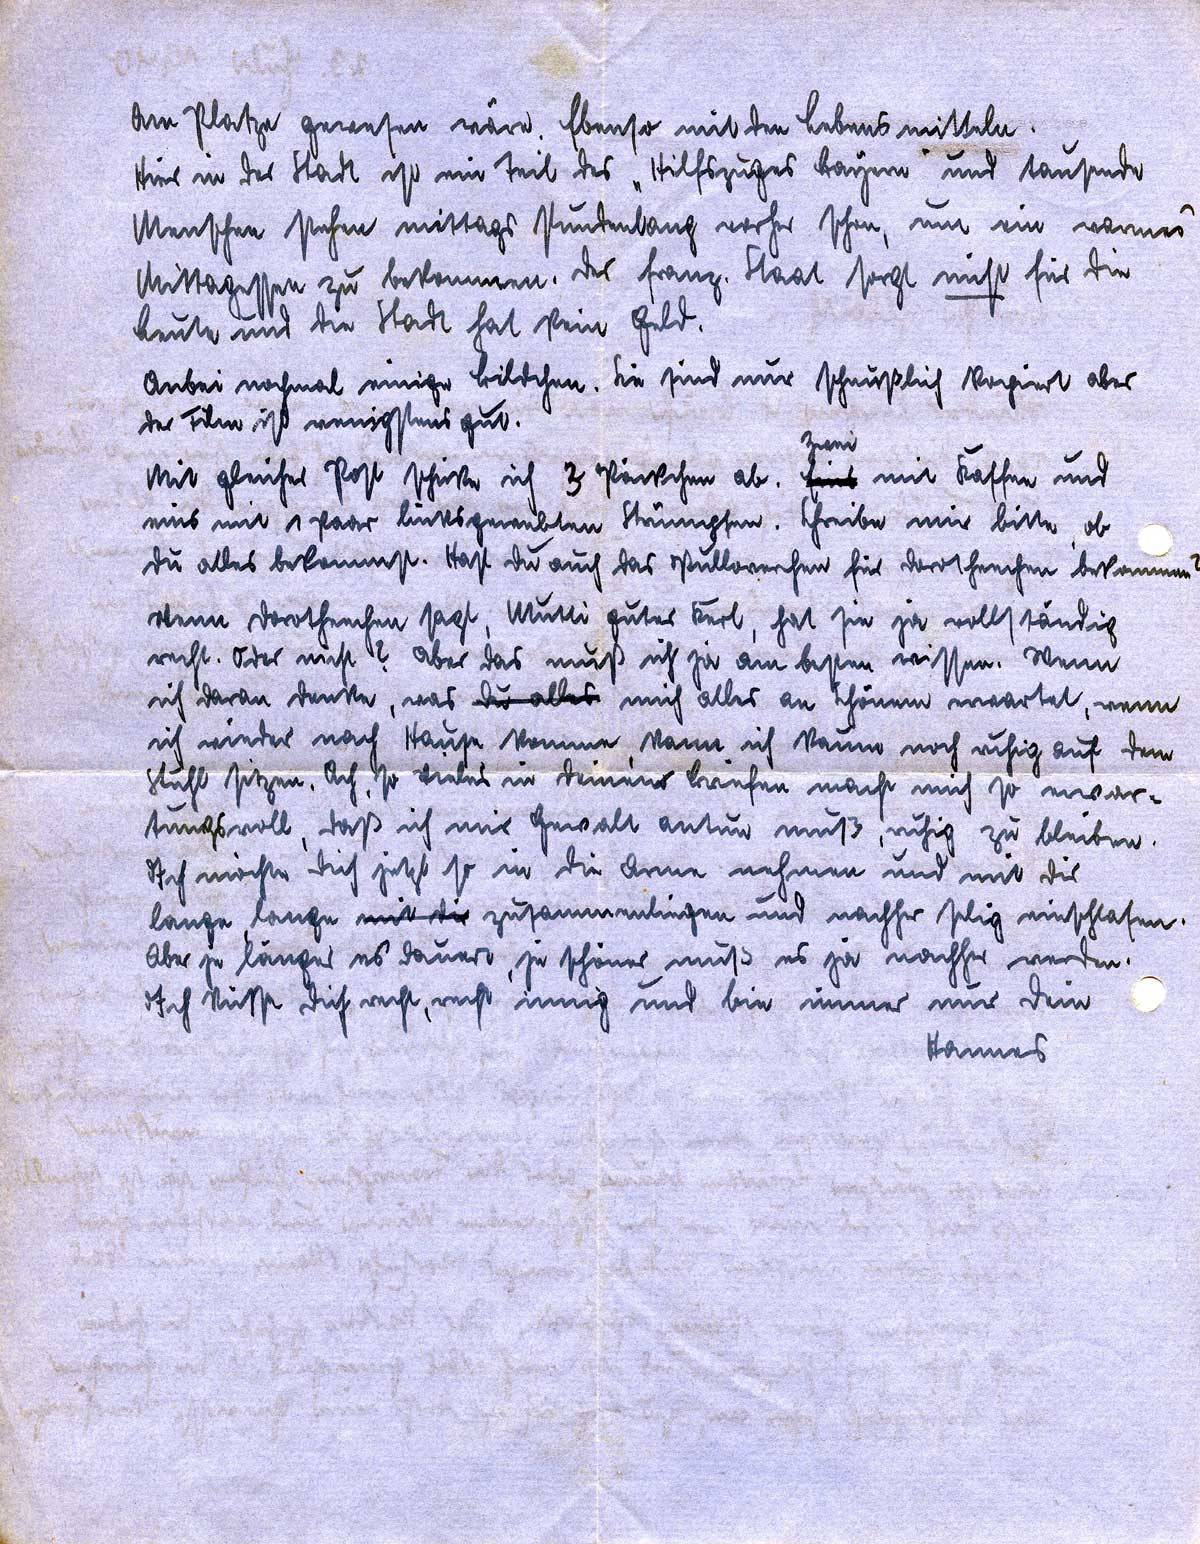 am Platze gewesen wäre. Ebenso mit den Lebensmitteln.
Hier in der Stadt ist ein Teil des „Hilfszuges Bayern" und tausende
Menschen stehen mittags stundenlang vorher schon, um ein warmes
Mittagessen zu bekommen. Der franz. Staat sorgt nicht für die
Leute und die Stadt hat kein Geld.
Anbei nochmal einige Bildchen. Sie sind nur scheußlich kopiert aber
der Film ist wenigstens gut.
zwei
Mit gleicher Post schicke ich 3 Päckchen ab. Eins mit Kaffee und
eins mit 1 Paar linksgewebten Strümpfen. Schreibe mir bitte, ob
du alles bekommst. Hast du auch das Pulloverchen für Dorotheechen bekommen?
Wenn Dorotheechen sagt, Mutti guter Kerl, hat sie ja vollständig
recht. Oder nicht? Aber das muß ich ja am besten wissen. Wenn
ich daran denke, was du alles mich alles an Schönem erwartet, wenn
ich wieder nach Hause komme, kann ich kaum noch ruhig auf dem
Stuhl sitzen. Ach, so vieles in deinen Briefen macht mich so erwar-
tungsvoll, daß ich mir Gewalt antun muß, ruhig zu bleiben.
Ich möchte dich jetzt so in die Arme nehmen und mit dir
lange, lange mit dir zusammenliegen und nachher selig einschlafen.
Aber je länger es dauert, je schöner muß es ja nachher werden.
Ich küsse dich recht, recht innig und bin immer nur dein
Hannes